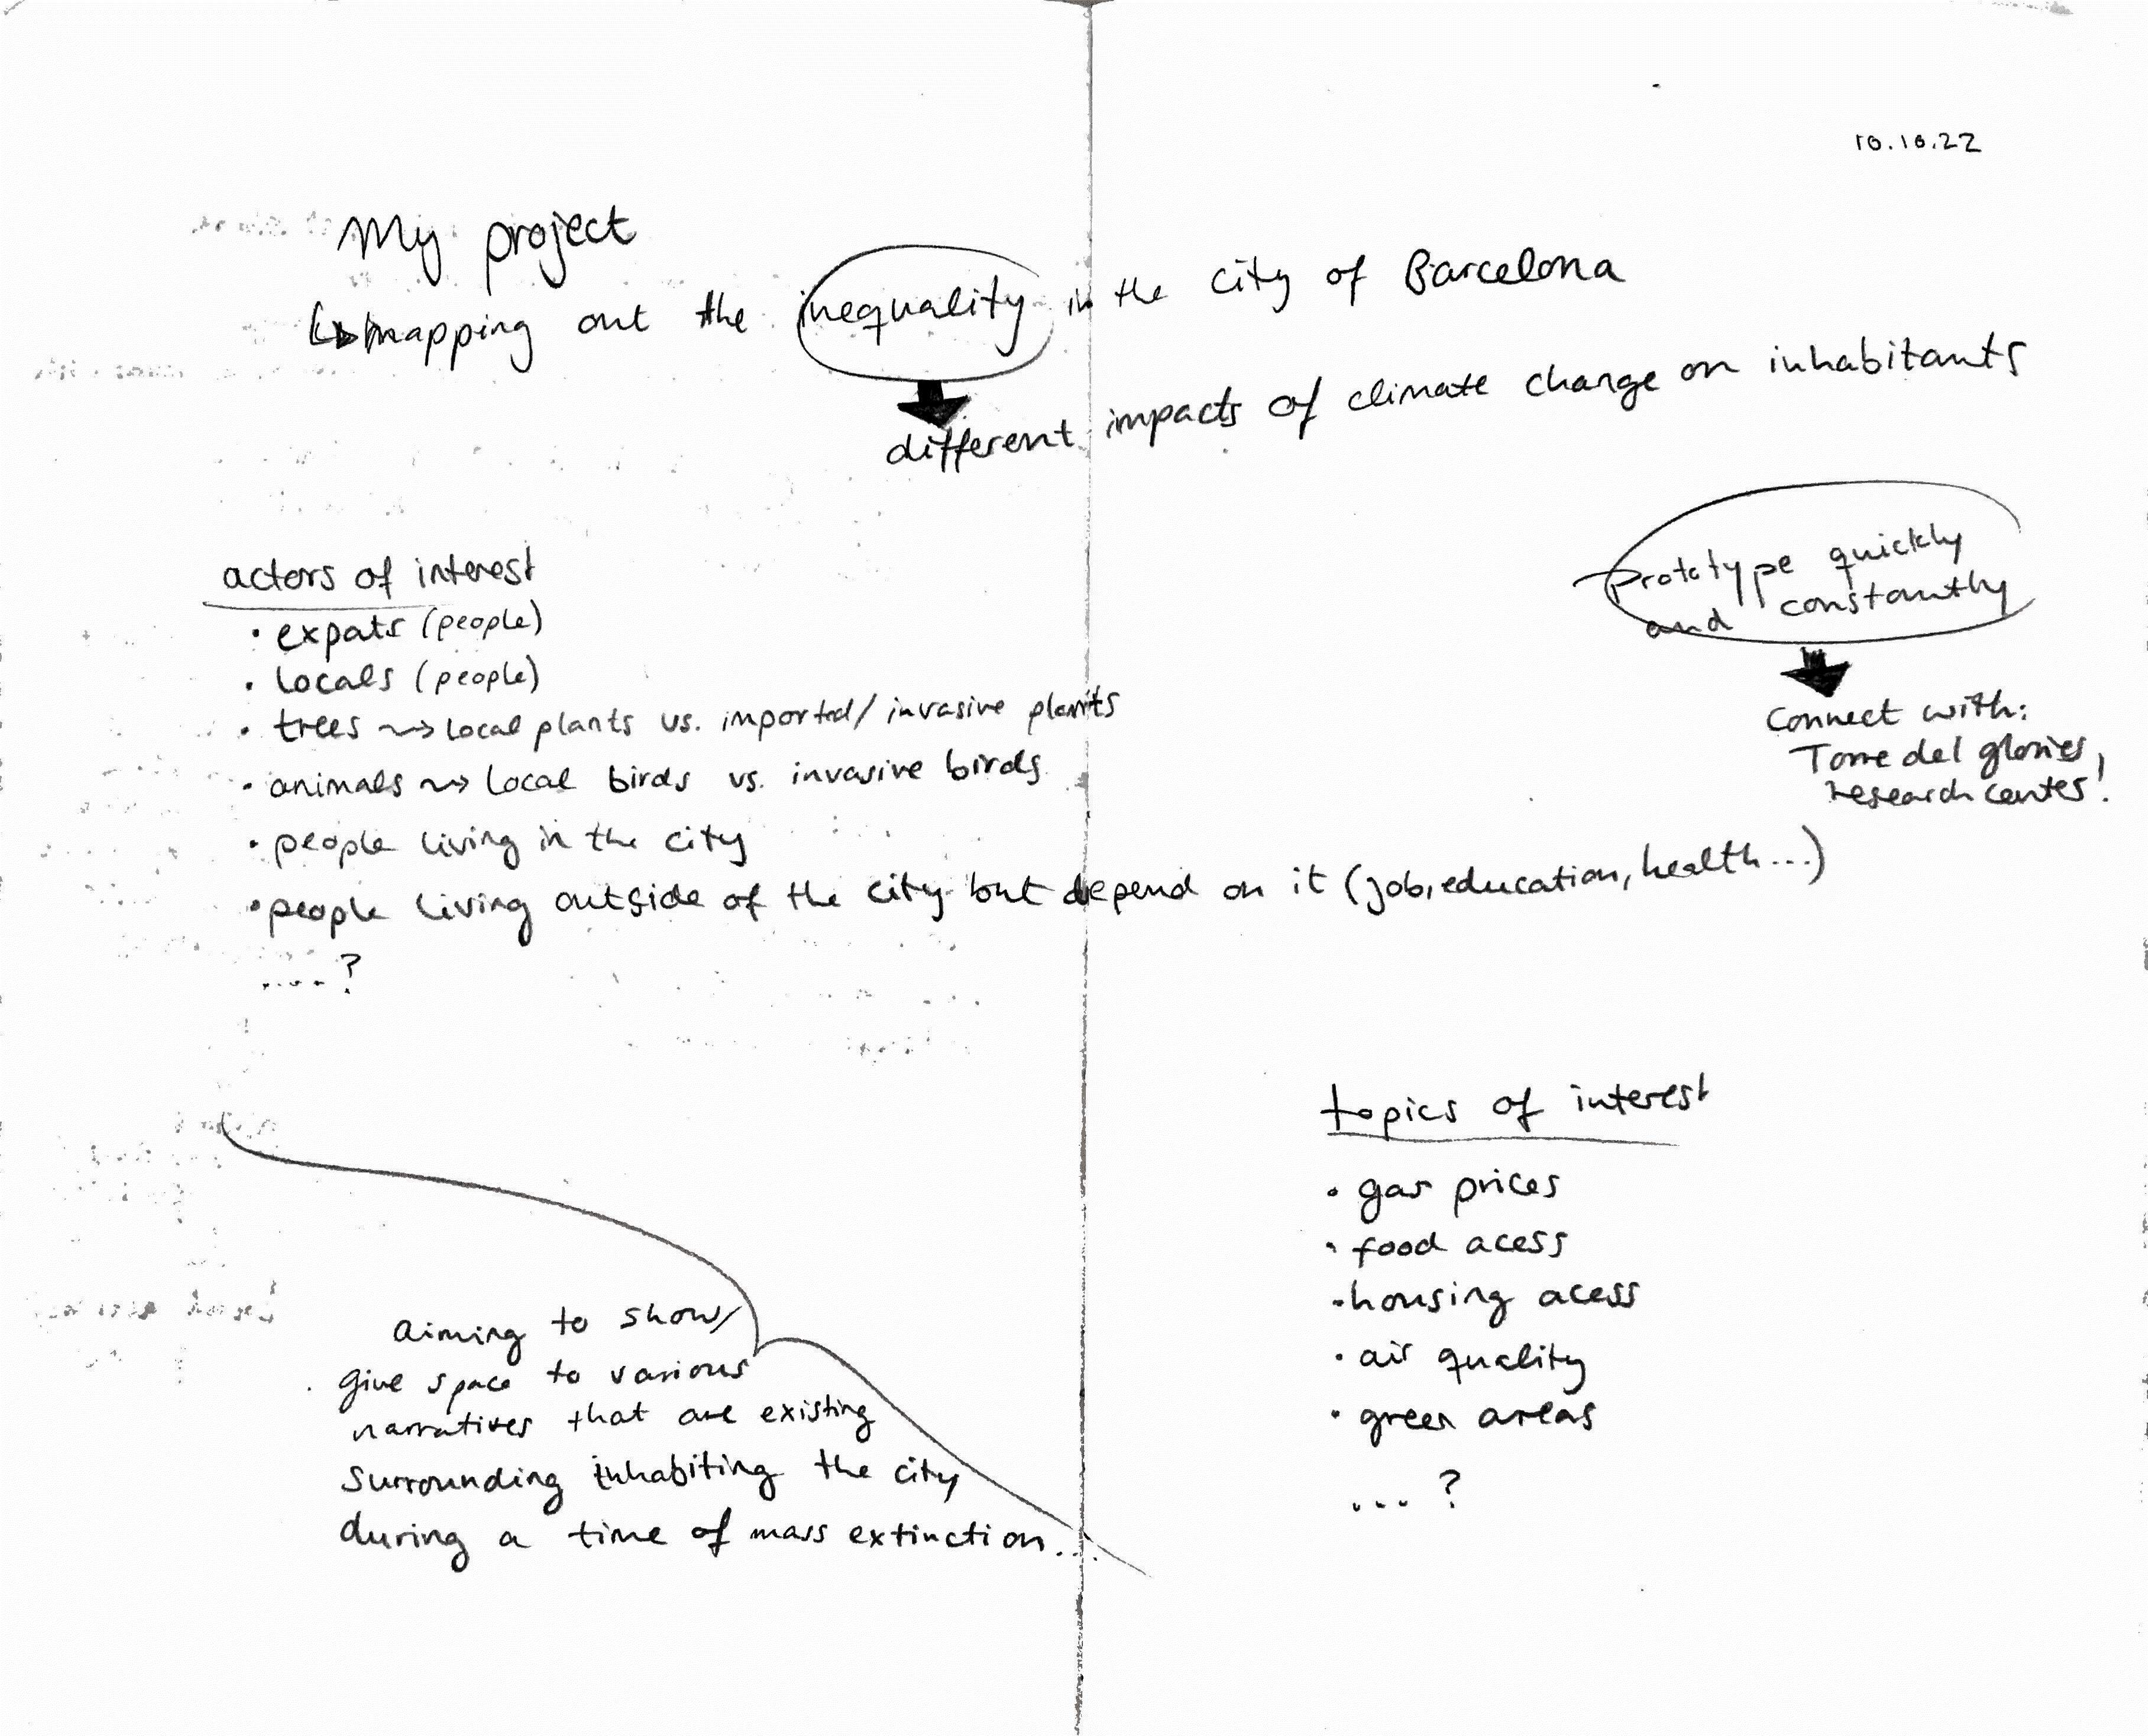 10.10.22
My project
mapping out the inequality in the city of Barcelona
different impacts of climate change on inhabitants
prototype quickly
and constantly
Connect with:
Torre del glories
research center!
actors of interest
• expats (people)
• locals (people)
• trees ~> local plants vs. imported/invasive plants
• animals ~> local birds vs. invasive birds
• people living in the city
• people living outside of the city but depend on it (job, education, health...)
....?
aiming to show/
give space to various
narratives that are existing
surrounding inhabiting the city
during a time of mass extinction...
topics of interest
• gas prices
• food acess
• housing acess
• air quality
• green areas
... ?